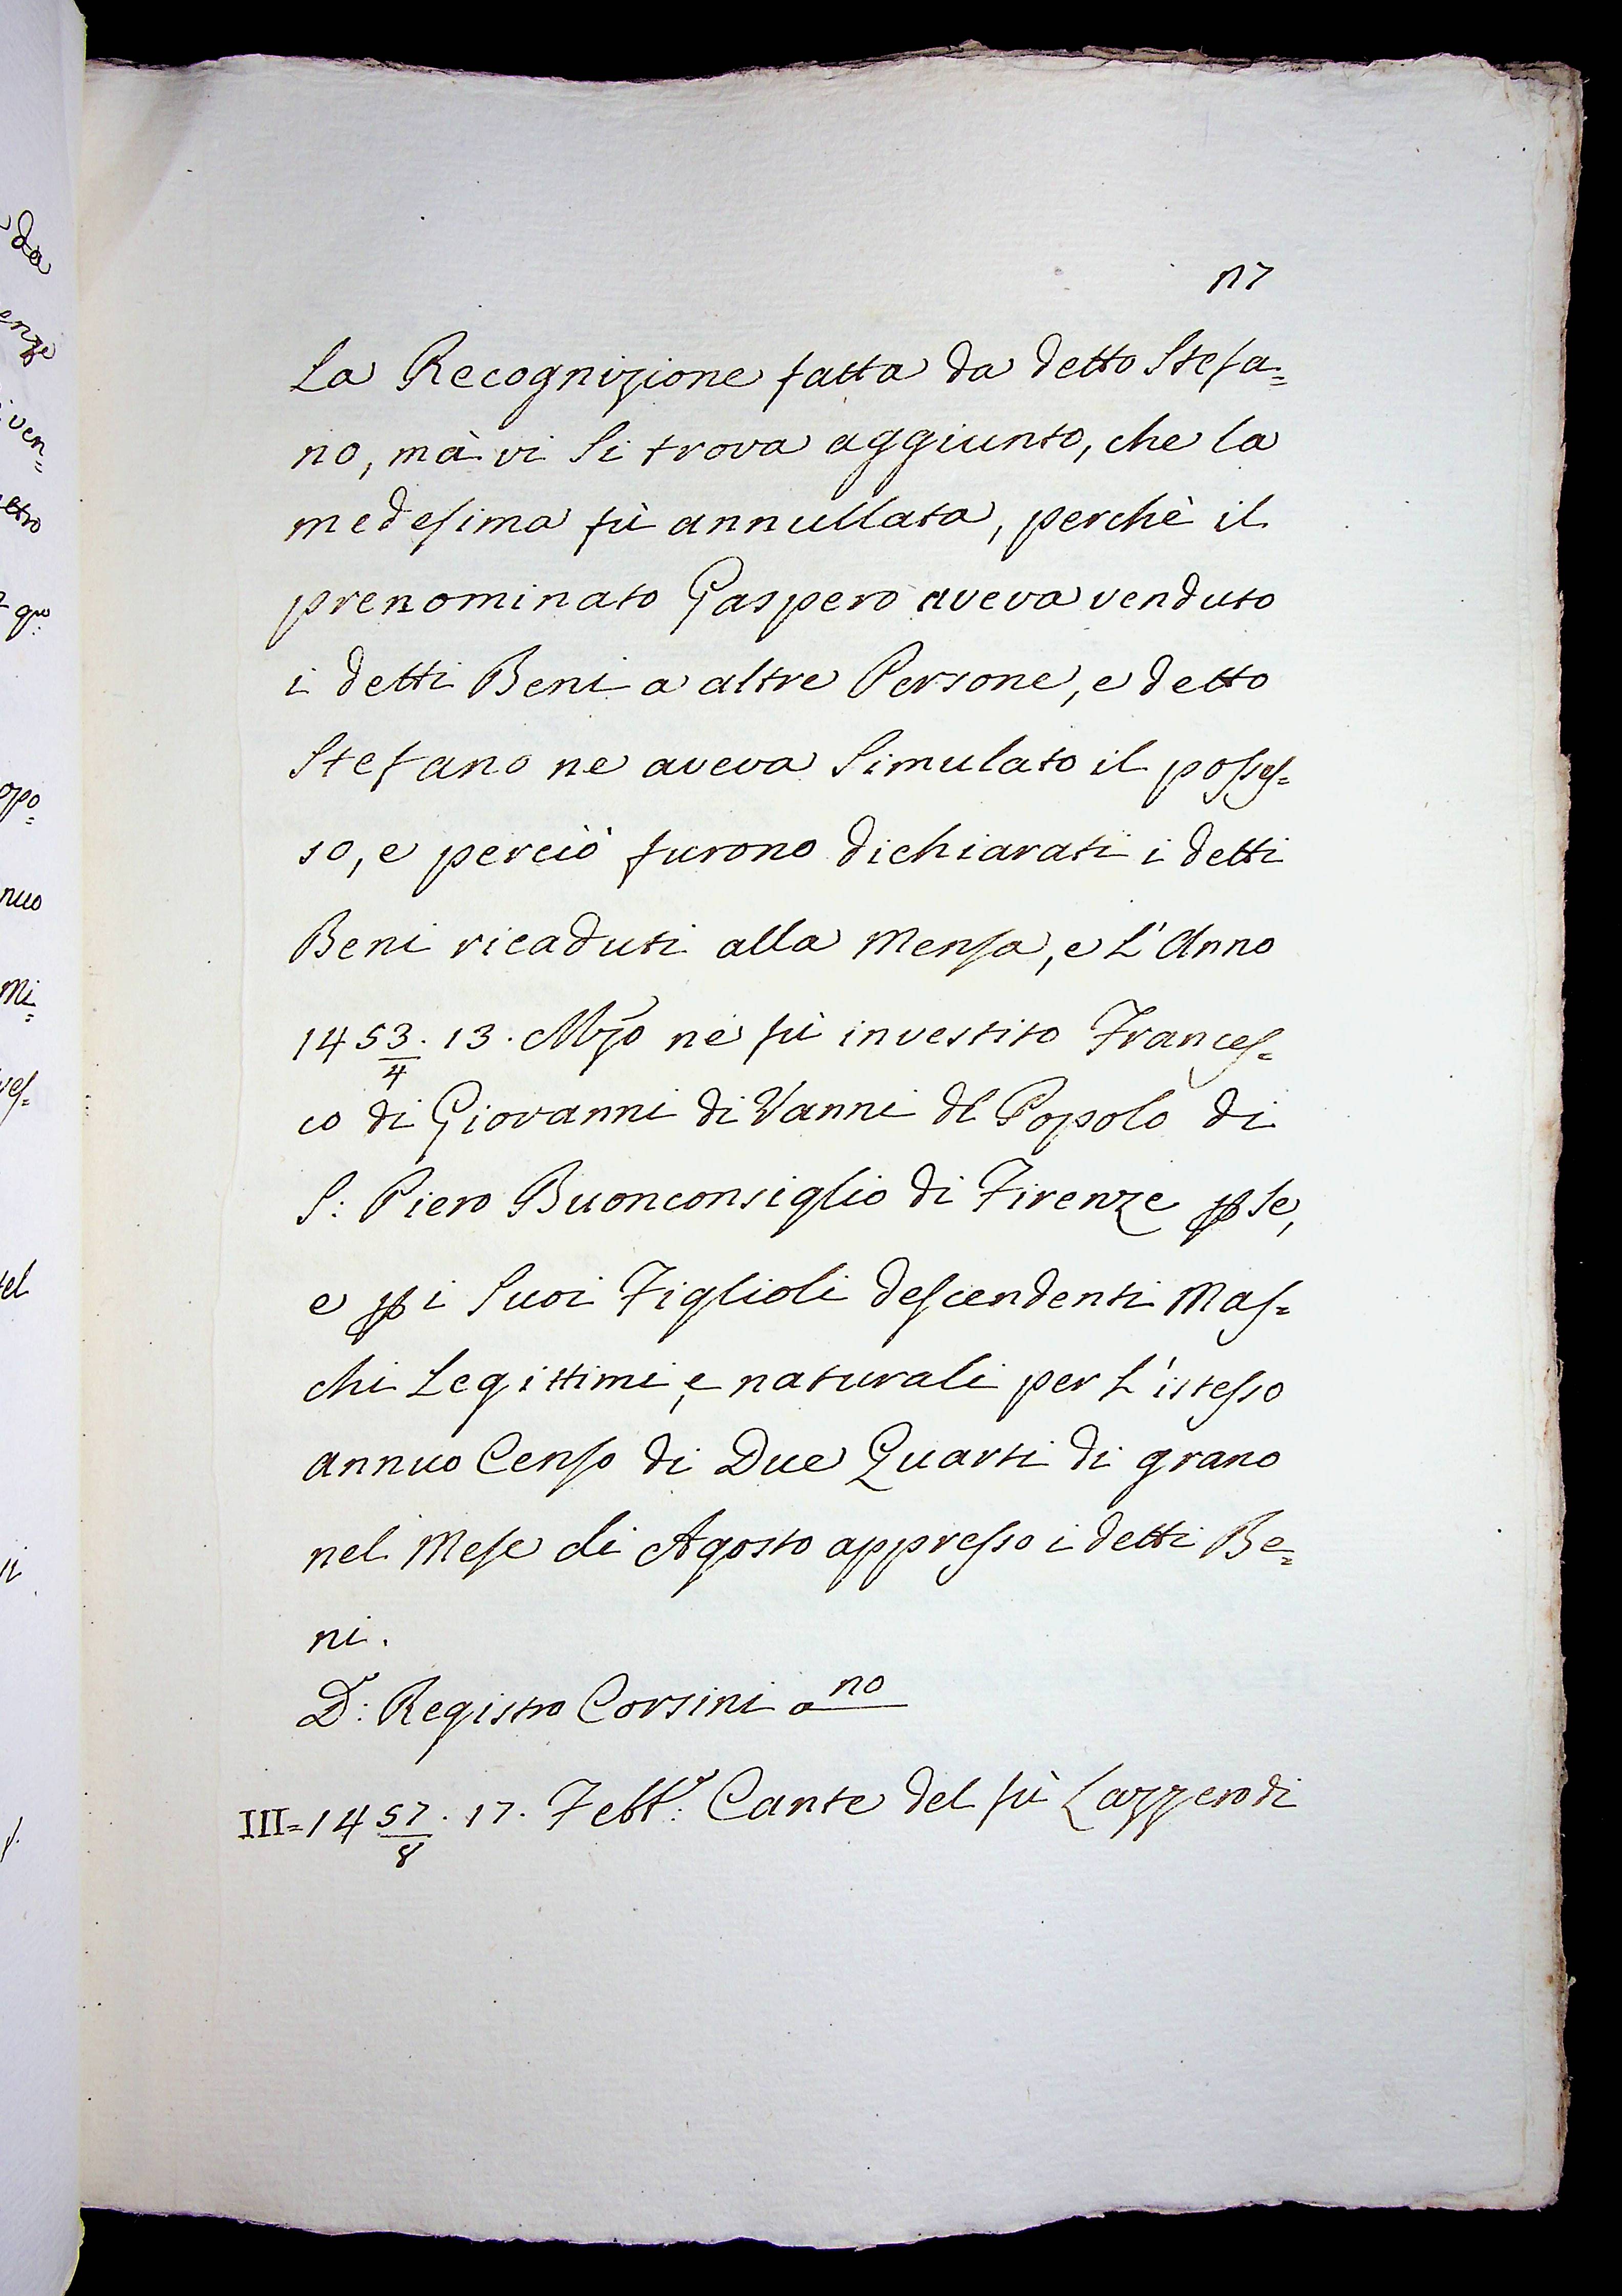 117
La Recognizione fatta da detto Stefa=
no, mà vi Si trova aggiunto, che la
medesima fù annullata, perchè il
prenominato Gaspero aveva venduto
i detti Beni a altre Persone, e detto
Stefano ne aveva Simulato il posses=
so, e perciò furono dichiarati i detti
Beni ricaduti alla Mensa, e L'Anno
1453/4. 13. Mzo ne fù investito Frances=
co di Giovanni di Vanni dl Popolo di
S: Piero Buonconsiglio di Firenze p se,
e p i Suoi Figlioli descendenti Mas=
chi Legittimi, e naturali per L'istesso
annuo Censo di Due Quarti di grano
nel Mese di Agosto appresso i detti Be=
ni.
Dº: Registro Corsini a no
III=1457/8. 17. Febb.º: Cante del fù Lazzero di